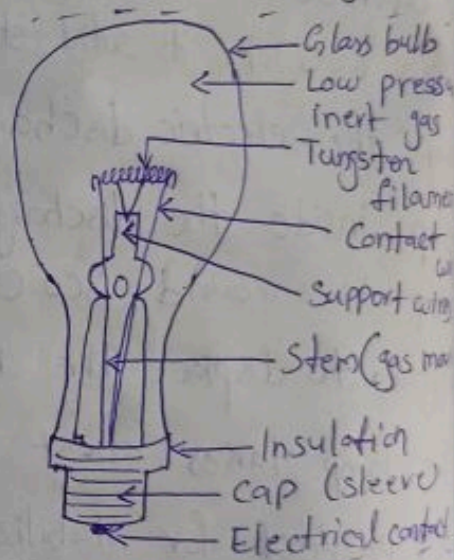 Glass bulb
Low press
inert gas
Tungsten
filame
Contact
wi
Support wire
Stem (gas mou
Insulation
Cap (sleeve)
Electrical contact